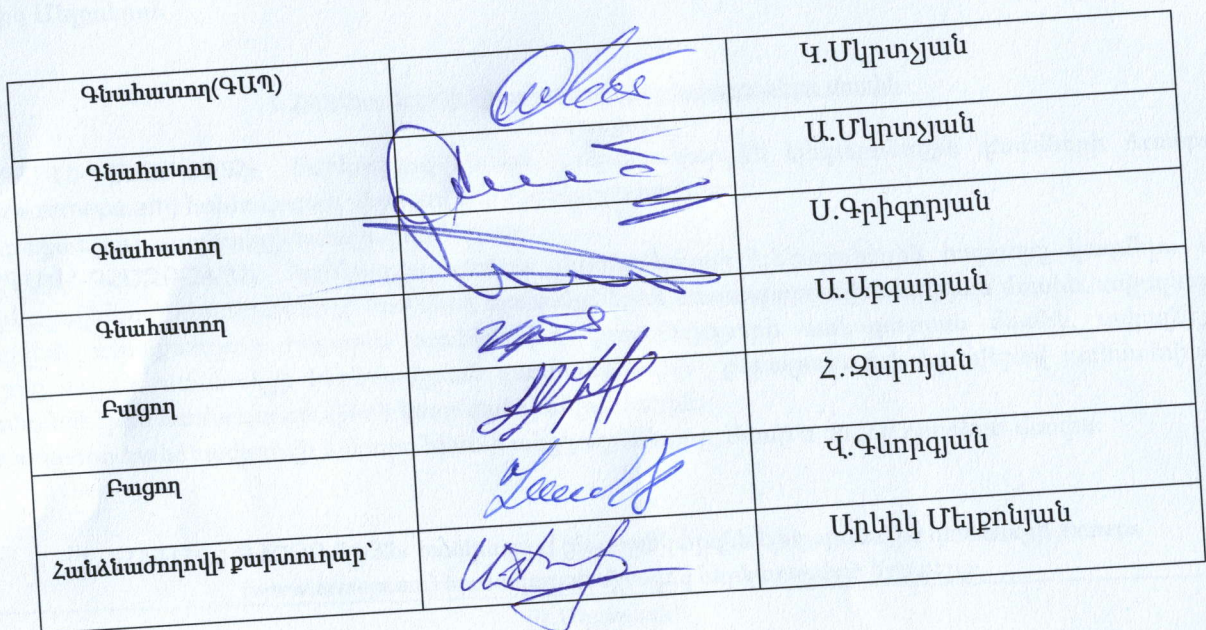 Գնահատող(ԳԱՊ) Կ.Մկրտչյան
Գնահատող Ա.Մկրտչյան
Գնահատող Ս.Գրիգորյան
Գնահատող Ա.Աբգարյան
Բացող Հ.Զարոյան
Բացող Վ.Գևորգյան
Հանձնաժողովի քարտուղար՝ Արևիկ Մելքոնյան